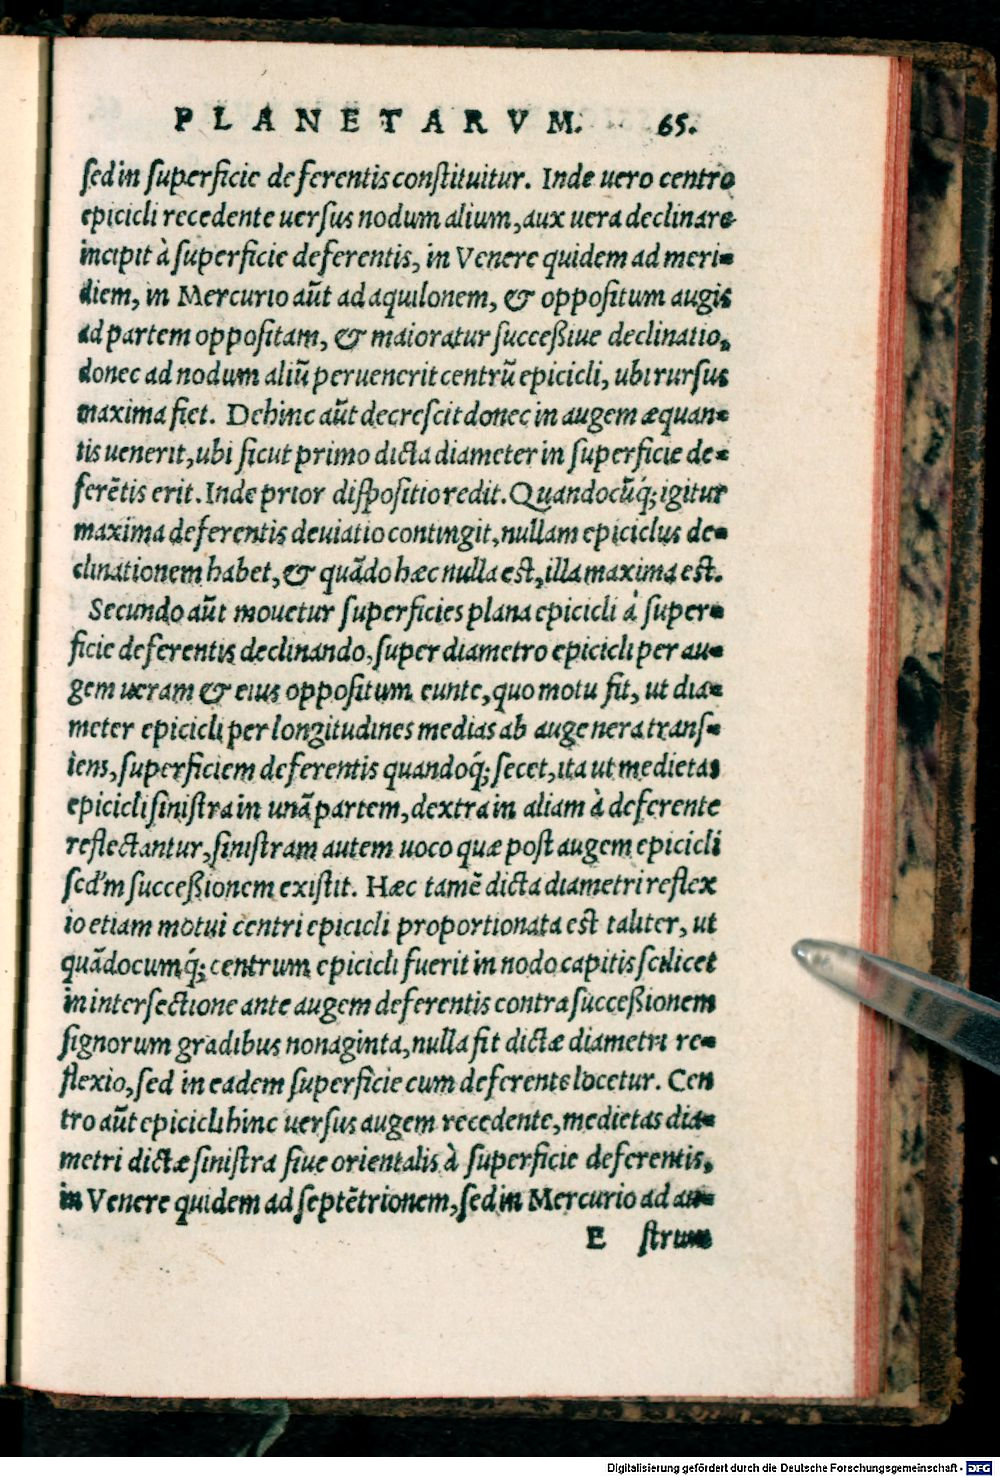 PLANETARVM. 65.
ſed in ſuperficie deferentis conſtituitur. Inde uero centro
epicicli recedente uerſus nodum alium, aux uera declinare
incipit à ſuperficie deferentis, in Venere quidem ad meri-
diem, in Mercurio aũt ad aquilonem, & oppoſitum augis
ad partem oppoſitam, & maioratur ſucceßiue declinatio,
donec ad nodum aliũ peruenerit centrũ epicicli, ubi rurſus
maxima fiet. Dehinc aũt decreſcit donec in augem æquan-
tis uenerit, ubi ſicut primo dicta diameter in ſuperficie de-
ferẽtis erit. Inde prior diſpoſitio redit. Quandocũq́; igitur
maxima deferentis deuiatio contingit, nullam epiciclus de-
clinationem habet, & quãdo hæc nulla eſt, illa maxima eſt.
Secundo aũt mouetur ſuperficies plana epicicli à ſuper-
ficie deferentis declinando, ſuper diametro epicicli per au-
gem ueram & eius oppoſitum eunte, quo motu fit, ut dia-
meter epicicli per longitudines medias ab auge nera tranſ-
iens, ſuperficiem deferentis quandoq́; ſecet, ita ut medietas
epicicli ſiniſtra in unã partem, dextra in aliam à deferente
reflectantur, ſiniſtram autem uoco quæ poſt augem epicicli
ſed'm ſucceßionem exiſtit. Hæc tamẽ dicta diametri reflex
io etiam motui centri epicicli proportionata eſt taliter, ut
quãdocumq́; centrum epicicli fuerit in nodo capitis ſcilicet
in interſectione ante augem deferentis contra ſucceßionem
ſignorum gradibus nonaginta, nulla fit dictæ diametri re-
flexio, ſed in eadem ſuperficie cum deferente locetur. Cen
tro aũt epicicli hinc uerſus augem recedente, medietas dia-
metri dictæ ſiniſtra ſiue orientalis à ſuperficie deferentis,
in Venere quidem ad ſeptẽtrionem, ſed in Mercurio ad au-
E ſtrum
Digitalisierung gefördert durch die Deutsche Forschungsgemeinschaft - DFG